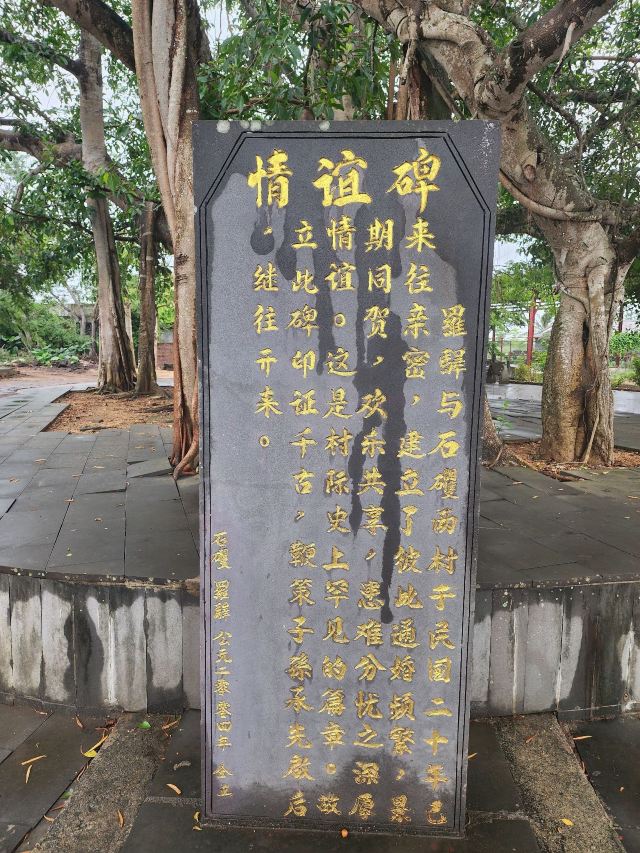 情谊碑
羅驛与石矍两村于民国二十年已
来往亲密，建立了彼此通婚频繁，累
期同贺，欢乐共享，患难分忧之深厚
情谊。这是村际史上罕见的篇章。故
立此碑印证千古，鞭策子孫承先啟后
，继往开来。
石矍 羅驛 公元二零零四年 仝立